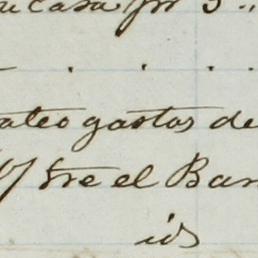 su casa por 3 "
. . . .
ateo gastos de
Fre el Ban
ids